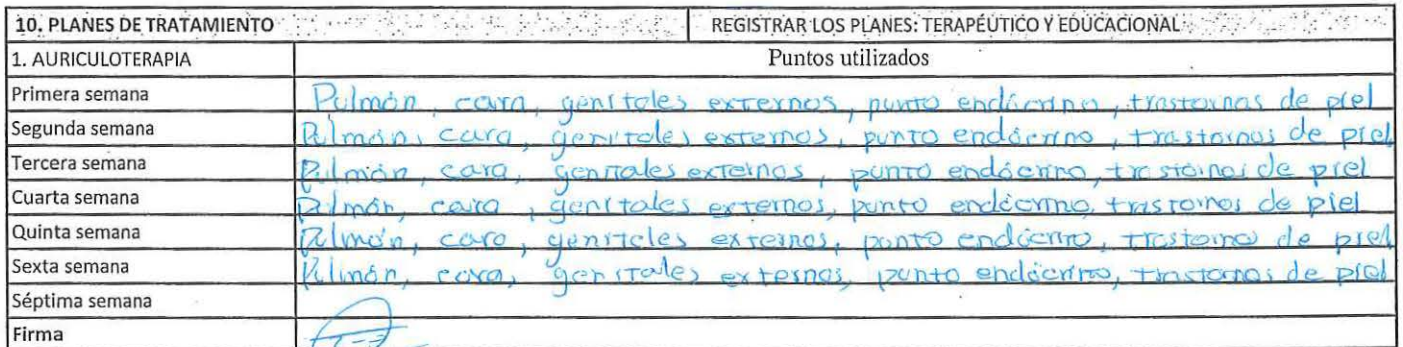 10. PLANES DE TRATAMIENTO REGISTRAR LOS PLANES: TERAPÉUTICO Y EDUCACIONAL
1. AURICULOTERAPIA Puntos utilizados
Primera semana Pulmón, cara, genitales externos, punto endócrino, trastornos de piel
Segunda semana Pulmón, cara, genitales externos, punto endócrino, trastornos de piel
Tercera semana Pulmón, cara, genitales externos, punto endócrino, trastornos de piel
Cuarta semana Pulmón, cara, genitales externos, punto endócrino, trastornos de piel
Quinta semana Pulmón, cara, genitales externos, punto endócrino, trastorno de piel
Sexta semana Pulmón, cara, genitales externos, punto endócrino, trastornos de piel
Séptima semana
Firma